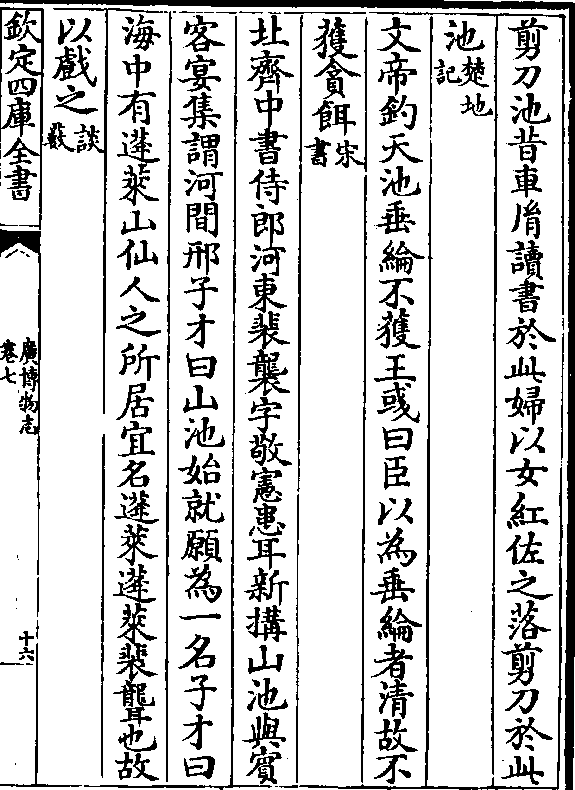 剪刀池昔車𦙍讀書於此婦以女紅佐之落剪刀於此
池楚地記
文帝釣天池垂綸不獲王彧曰臣以為垂綸者清故不
獲貪餌宋書
北齊中書侍郎河東裴襲字敬憲患耳新搆山池與賓
客宴集謂河間邢子才曰山池始就願為一名子才曰
海中有蓬萊山仙人之所居宜名蓬萊蓬萊裴聾也故
以戲之談藪
欽定四庫全書
廣博物志
卷七
十六